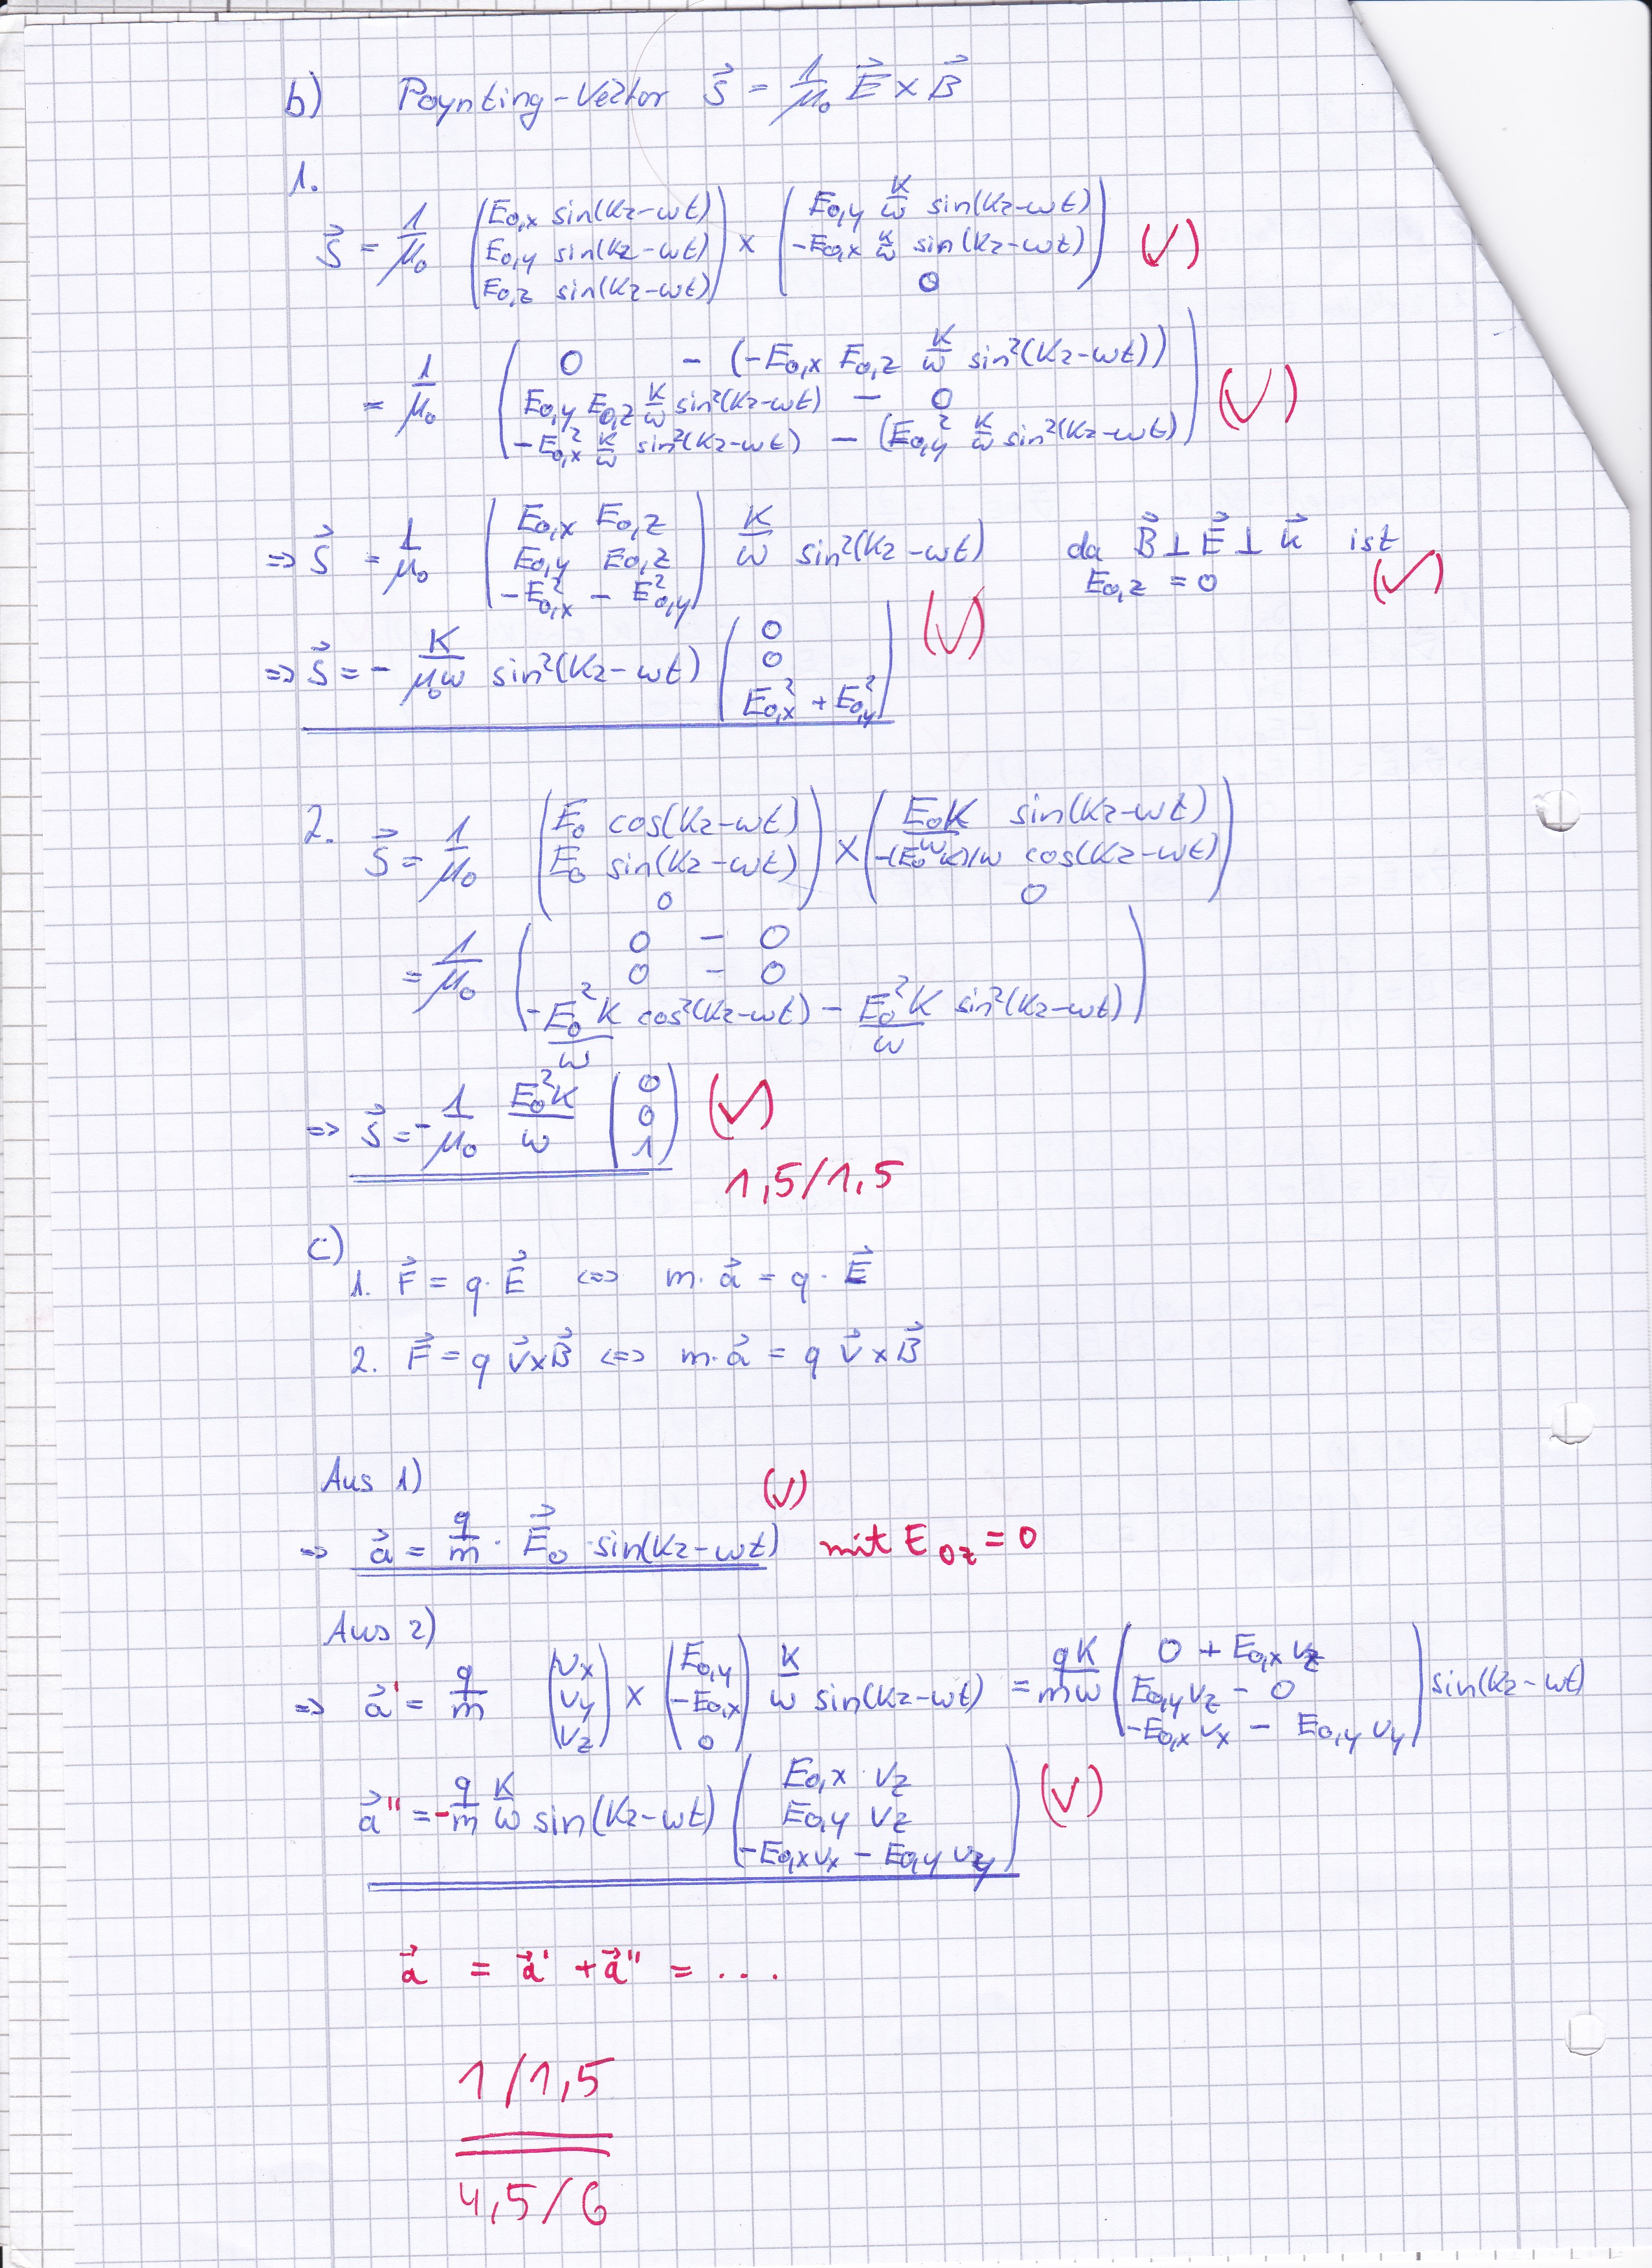 b) Poynting-Vektor S⃗ = 1/μ₀ E⃗ × B⃗
1.
S⃗ = 1/μ₀ (E₀,ₓ sin(kz-ωt); E₀,y sin(kz-ωt); E₀,z sin(kz-ωt)) × (E₀,y k/ω sin(kz-ωt); -E₀,ₓ k/ω sin(kz-ωt); 0) (✓)
= 1/μ₀ (0 - (-E₀,ₓ E₀,z k/ω sin²(kz-ωt)); E₀,y E₀,z k/ω sin²(kz-ωt) - 0; -E₀,ₓ² k/ω sin²(kz-ωt) - (E₀,y² k/ω sin²(kz-ωt)) (✓)
=> S⃗ = 1/μ₀ (E₀,ₓ E₀,z; E₀,y E₀,z; -E₀,ₓ² - E₀,y²) k/ω sin²(kz-ωt) da B⃗ ⊥ E⃗ ⊥ k⃗ ist
E₀,z = 0 (✓)
=> S⃗ = - k/(μ₀ω) sin²(kz-ωt) (0; 0; E₀,ₓ² + E₀,y²) (✓)
2. S⃗ = 1/μ₀ (E₀ cos(kz-ωt); E₀ sin(kz-ωt); 0) × (E₀k/ω sin(kz-ωt); -(E₀k)/ω cos(kz-ωt); 0)
= 1/μ₀ (0 - 0; 0 - 0; -E₀²k/ω cos²(kz-ωt) - E₀²k/ω sin²(kz-ωt))
=> S⃗ = - 1/μ₀ E₀²k/ω (0; 0; 1) (✓)
1,5/1,5
c)
1. F⃗ = q · E⃗ <=> m · a⃗ = q · E⃗
2. F⃗ = q v⃗×B⃗ <=> m · a⃗ = q v⃗ × B⃗
Aus 1) (✓)
=> a⃗ = q/m · E⃗₀ · sin(kz-ωt) mit E₀z = 0
Aus 2)
=> a⃗' = q/m (vₓ; v_y; v_z) × (E₀,y; -E₀,ₓ; 0) k/ω sin(kz-ωt) = qk/mω (0 + E₀,ₓ v_z; E₀,y v_z - 0; -E₀,ₓ vₓ - E₀,y v_y) sin(kz-ωt)
a⃗'' = - q/m k/ω sin(kz-ωt) (E₀,ₓ · v_z; E₀,y v_z; -E₀,ₓ vₓ - E₀,y v_y) (✓)
a⃗ = a⃗' + a⃗'' = ...
1/1,5
4,5/6